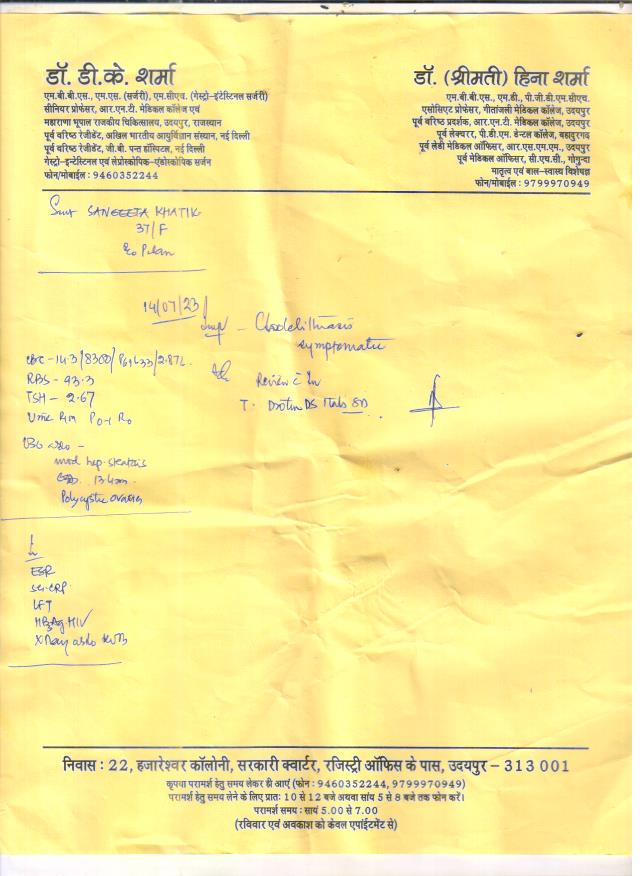 डॉ. डी.के. शर्मा
एम.बी.बी.एस., एम.एस. (सर्जरी), एम.सीएच. (गेस्ट्रो-इंटेस्टिनल सर्जरी)
सीनियर प्रोफेसर, आर.एन.टी. मेडिकल कॉलेज एवं
महाराणा भूपाल राजकीय चिकित्सालय, उदयपुर, राजस्थान
पूर्व वरिष्ठ रेजीडेंट, अखिल भारतीय आयुर्विज्ञान संस्थान, नई दिल्ली
पूर्व वरिष्ठ रेजीडेंट, जी.बी. पन्त हॉस्पिटल, नई दिल्ली
गेस्ट्रो-इन्टेस्टिनल एवं लेप्रोस्कोपिक-एंडोस्कोपिक सर्जन
फोन/मोबाईल : 9460352244
डॉ. (श्रीमती) हिना शर्मा
एम.बी.बी.एस., एम.डी., पी.जी.डी.एम.सीएच.
एसोसिएट प्रोफेसर, गीतांजली मेडिकल कॉलेज, उदयपुर
पूर्व वरिष्ठ प्रदर्शक, आर.एन.टी. मेडिकल कॉलेज, उदयपुर
पूर्व लेक्चरर, पी.डी.एम. डेन्टल कॉलेज, बहादुरगढ़
पूर्व लेडी मेडिकल ऑफिसर, आर.एस.एम.एम., उदयपुर
पूर्व मेडिकल ऑफिसर, सी.एच.सी., गोगुन्दा
मातृत्व एवं बाल-स्वास्थ्य विशेषज्ञ
फोन/मोबाईल : 9799970949
Smt SANGEETA KHATIK
37/F
14/07/23
Symptomatic
CBC - 14.3/8300/
RBS - 93.3
TSH - 2.67
Review c
T. Drotin DS 1tab SD
mod hep. steatosis
Polycystic ovaries
ESR
LFT
HBsAg HIV
X Ray
निवास : 22, हजारेश्वर कॉलोनी, सरकारी क्वार्टर, रजिस्ट्री ऑफिस के पास, उदयपुर – 313 001
कृपया परामर्श हेतु समय लेकर ही आएं (फोन : 9460352244, 9799970949)
परामर्श हेतु समय लेने के लिए प्रातः 10 से 12 बजे अथवा सांय 5 से 8 बजे तक फोन करें।
परामर्श समय : सायं 5.00 से 7.00
(रविवार एवं अवकाश को केवल एपॉईंटमेंट से)